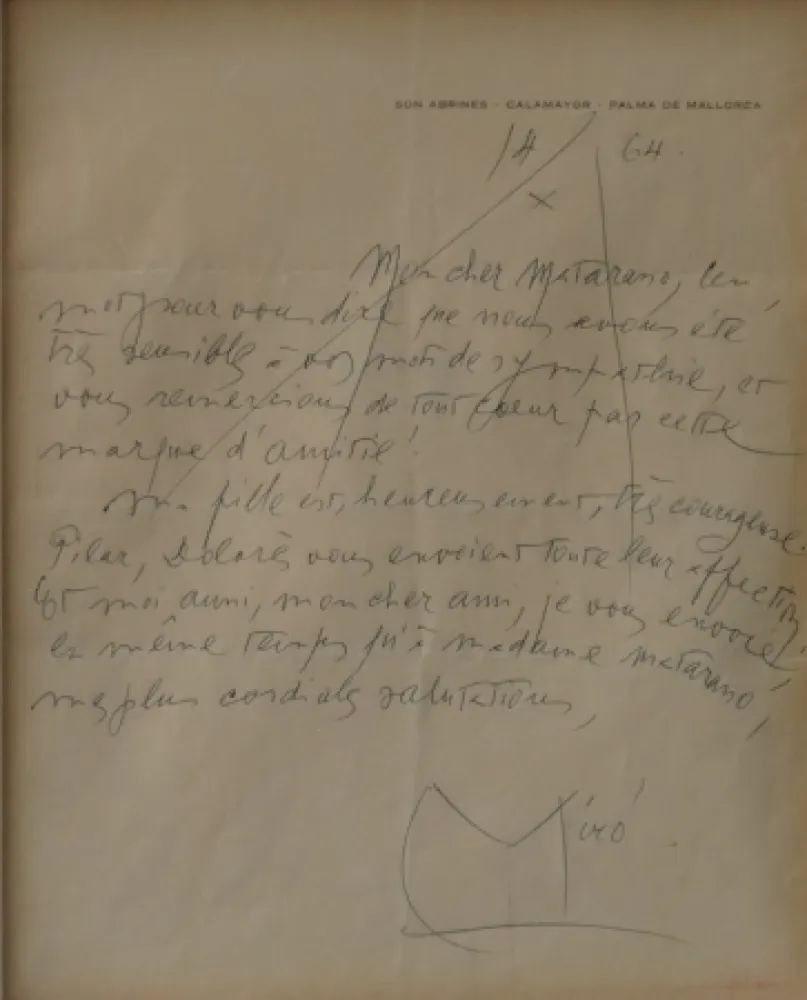 SON ABRINES - CALAMAYOR - PALMA DE MALLORCA
14 / X / 64.
Mon cher Matarano, un
mot pour vous dire que nous avons été
très sensible à vos mots de sympathie, et
vous remercions de tout coeur par cette
marque d'amitié!
Ma fille est, heureusement, très courageuse.
Pilar, Dolorès vous envoient toute leur affection,
Et moi aussi, mon cher ami, je vous envoie,
en même temps qu'à madame Matarano,
mes plus cordials salutations,
Miró